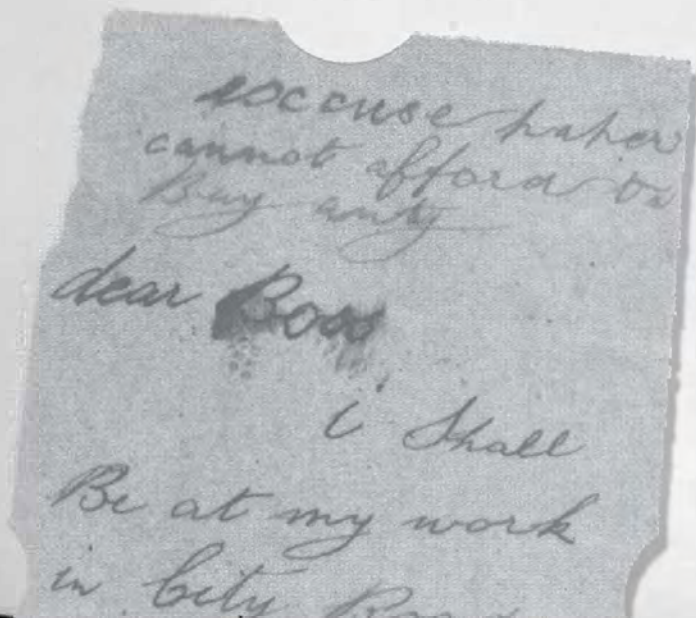 excuse paper
cannot afford to
Buy anty
dear Boss
i Shall
Be at my work
in City Road